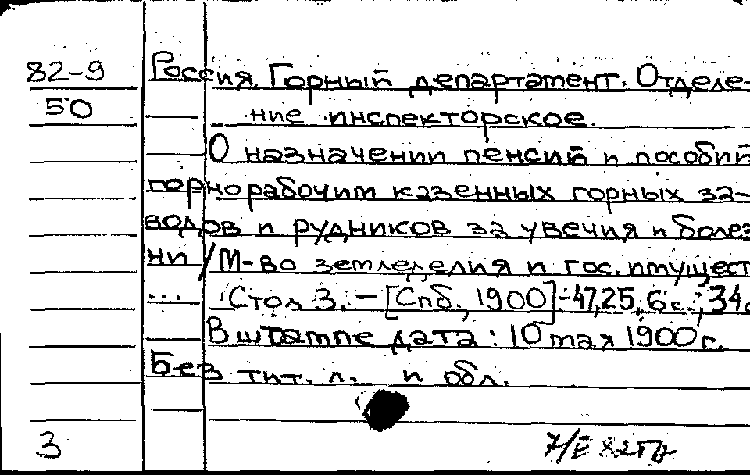 82-9
50
Россия. Горный департамент. Отделе-
ние инспекторское.
О назначении пенсий и пособий
горнорабочим казенных горных за-
водов и рудников за увечия и болез
ни / М-во земледелия и гос. имущест
... Стол 3. – [Спб., 1900]. – 47, 25, 6 с.; 34 с
В штампе дата: 10 мая 1900 г.
Без тит. л. и обл.
3